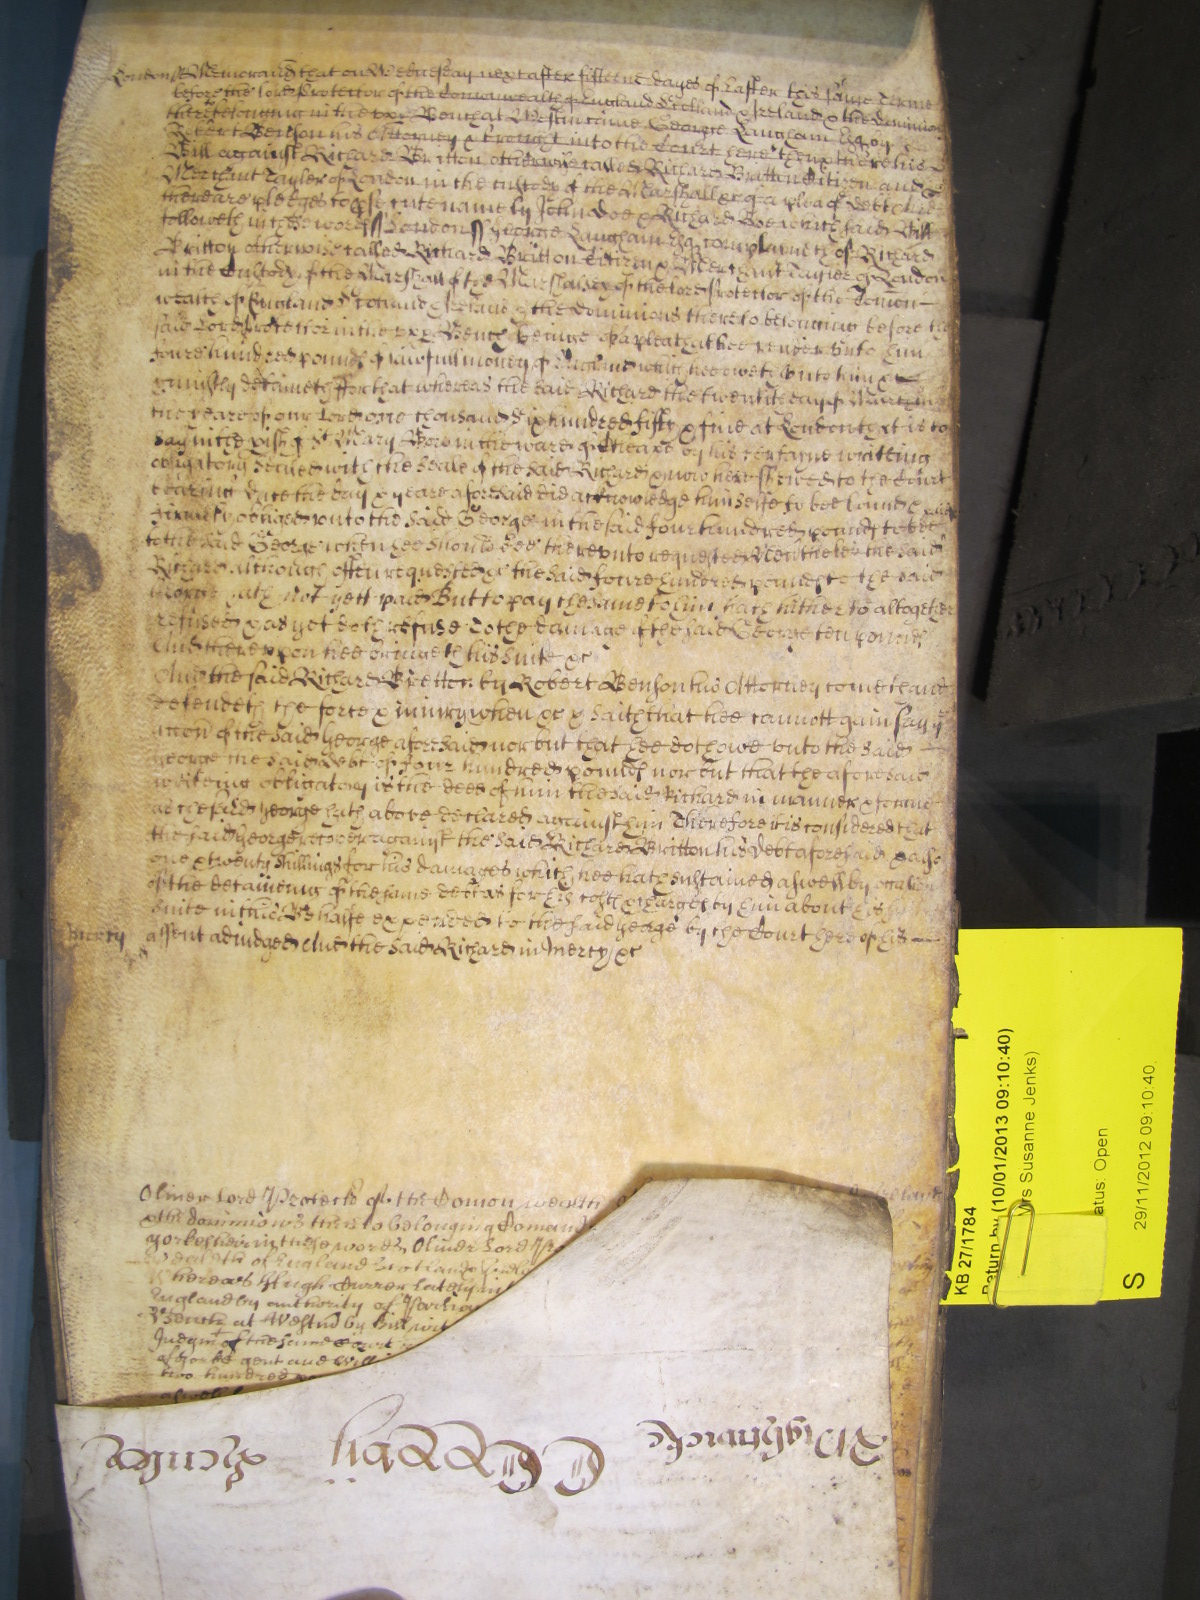 London ss Memorand that on Wednesday next after fifteene dayes of Easter this same Terme
before the lord Protector of the Comonwealth of England Scotland & Ireland & the dominions
thereto belonging in the vpp Bench at Westm came George Langham Esqr by
Robert Benson his Attorney & brought into the Court here then & there his
Bill against Richard Britton otherwise called Richard Britton Citizen and
Merchant Tayler of London in the custody of the Marshall &c of a plea of debt And
there are pledges to prosecute namely John Doe & Richard Roe which said Bill
followeth in these words ss London ss George Langham Esq complayneth of Richard
Britton otherwise called Richard Britton Citizen & Merchant Tayler of London
in the Custody of the Marshall of the Marshalsey of the lord Protector of the Comon
wealth of England Scotland & Ireland & the dominions thereto belonging before the
said Lord Protector in the vpp Bench beinge of a plea that hee render vnto him
foure hundred pounds of lawfull money of England which hee oweth vnto him &
uniustly detaineth ffor that whereas the said Richard the twentith day of March in
the yeare of our Lord one thousand six hundred fifty & fiue at London that is to
say in the pish of St Mary Bow in the ward of Cheape by his certayne writting
obligatory sealed with the seale of the said Richard & now here shewed to the Court
bearing date the day & yeare aforesaid did acknowledge himselfe to bee bound &
firmely obliged vnto the said George in the said four hundred pounds to bee
to the said George when hee should bee therevnto requested Neuertheles the said
Richard although often requested &c the said foure hundred pounds to the said
George hath not yett paid But to pay the same to him hath hitherto altogether
refused & as yet doth refuse To the damage of the said George ten pounds
And therevpon hee bringeth his suite &c
And the said Richard Britton by Robert Benson his Attorney cometh and
defendeth the force & iniury when &c & saith that hee cannott gainsay
accon of the said George aforesaid nor but that hee doth owe vnto the said
George the said debt of four hundred pounds nor but that the aforesaid
writeing obligatory is the deed of him the said Richard in manner & forme
as the said George hath above declared against him Therefore it is considered that
the said George recover against the said Richard Britton his debt aforesaid & also
one & twenty shillings for his damages which hee hath sustained aswell by occasion
of the detaineing of the same debt as for his costs & charges by him about his
suite in this behalfe expended to the said George by the Court here of his
mercy assent adiudged And the said Richard in mercy &c
Oliver Lord Protector of the Comon wealth Ireland
& the dominions thereto belonging Comand
Yorkeshire in these words Oliver Lord Pro
wealth of England Scotland
Whereas Hugh Currer lately in
England by authority of Parlia
Bench at Westm by Bill wit
Judgmt of the same Court
of Yorke gent and Will
two hundred
Wightwicke CCxxbij
KB 27/1784
Return by (10/01/2013 09:10:40)
Mrs Susanne Jenks)
atus: Open
S 29/11/2012 09:10:40